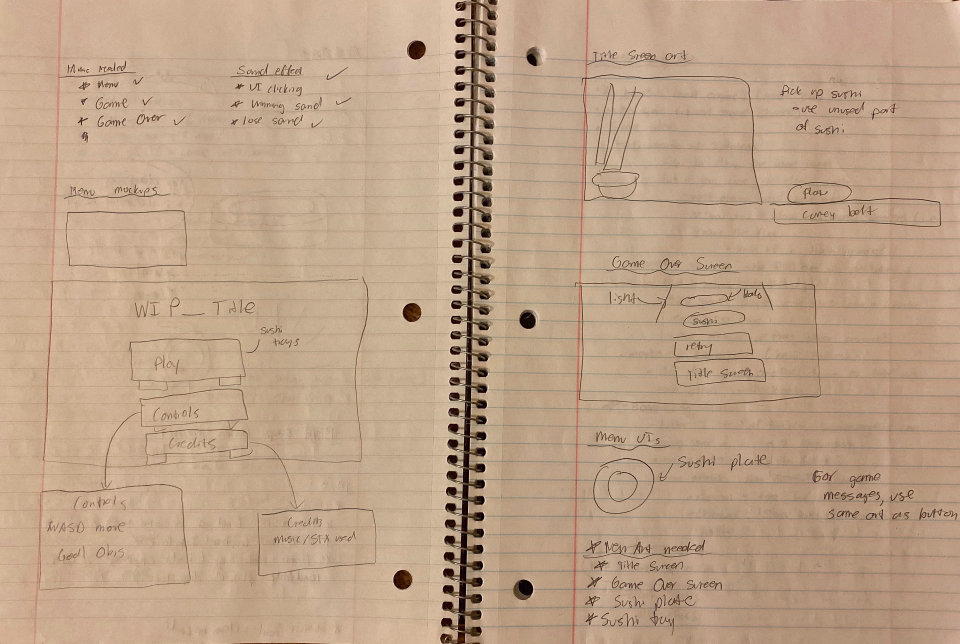 Music needed
* Menu ✓
* Game ✓
* Game Over ✓
*
Sound effect ✓
* UI clicking
* Winning sound ✓
* lose sound ✓
Menu mockups
WIP_ Title
sushi
trays
Play
Controls
Credits
Controls
WASD move
Credits
music/SFX used
Title Screen art
Pick up sushi
- use unused part
of sushi
Play
Game Over Screen
light →
Halo
sushi
retry
Title Screen
Menu UIs
Sushi plate
For game
messages, use
same art as button
* New Art needed
* Title Screen
* Game Over Screen
* Sushi plate
* Sushi tray